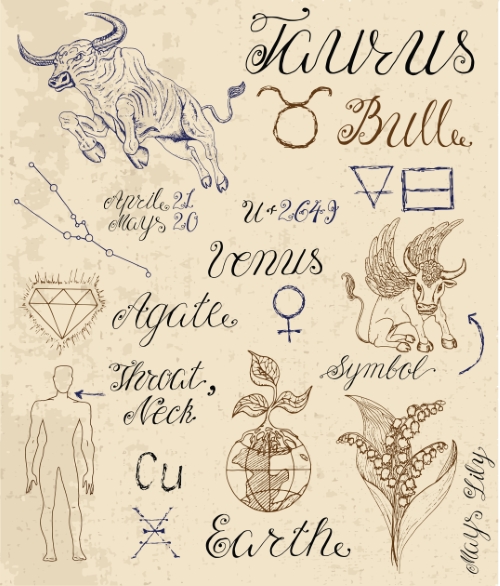 Taurus
Bull
April 21
Mays 20
U+2649
Venus
Agate
Throat,
Neck
Symbol
Cu
Earth
May's Lily